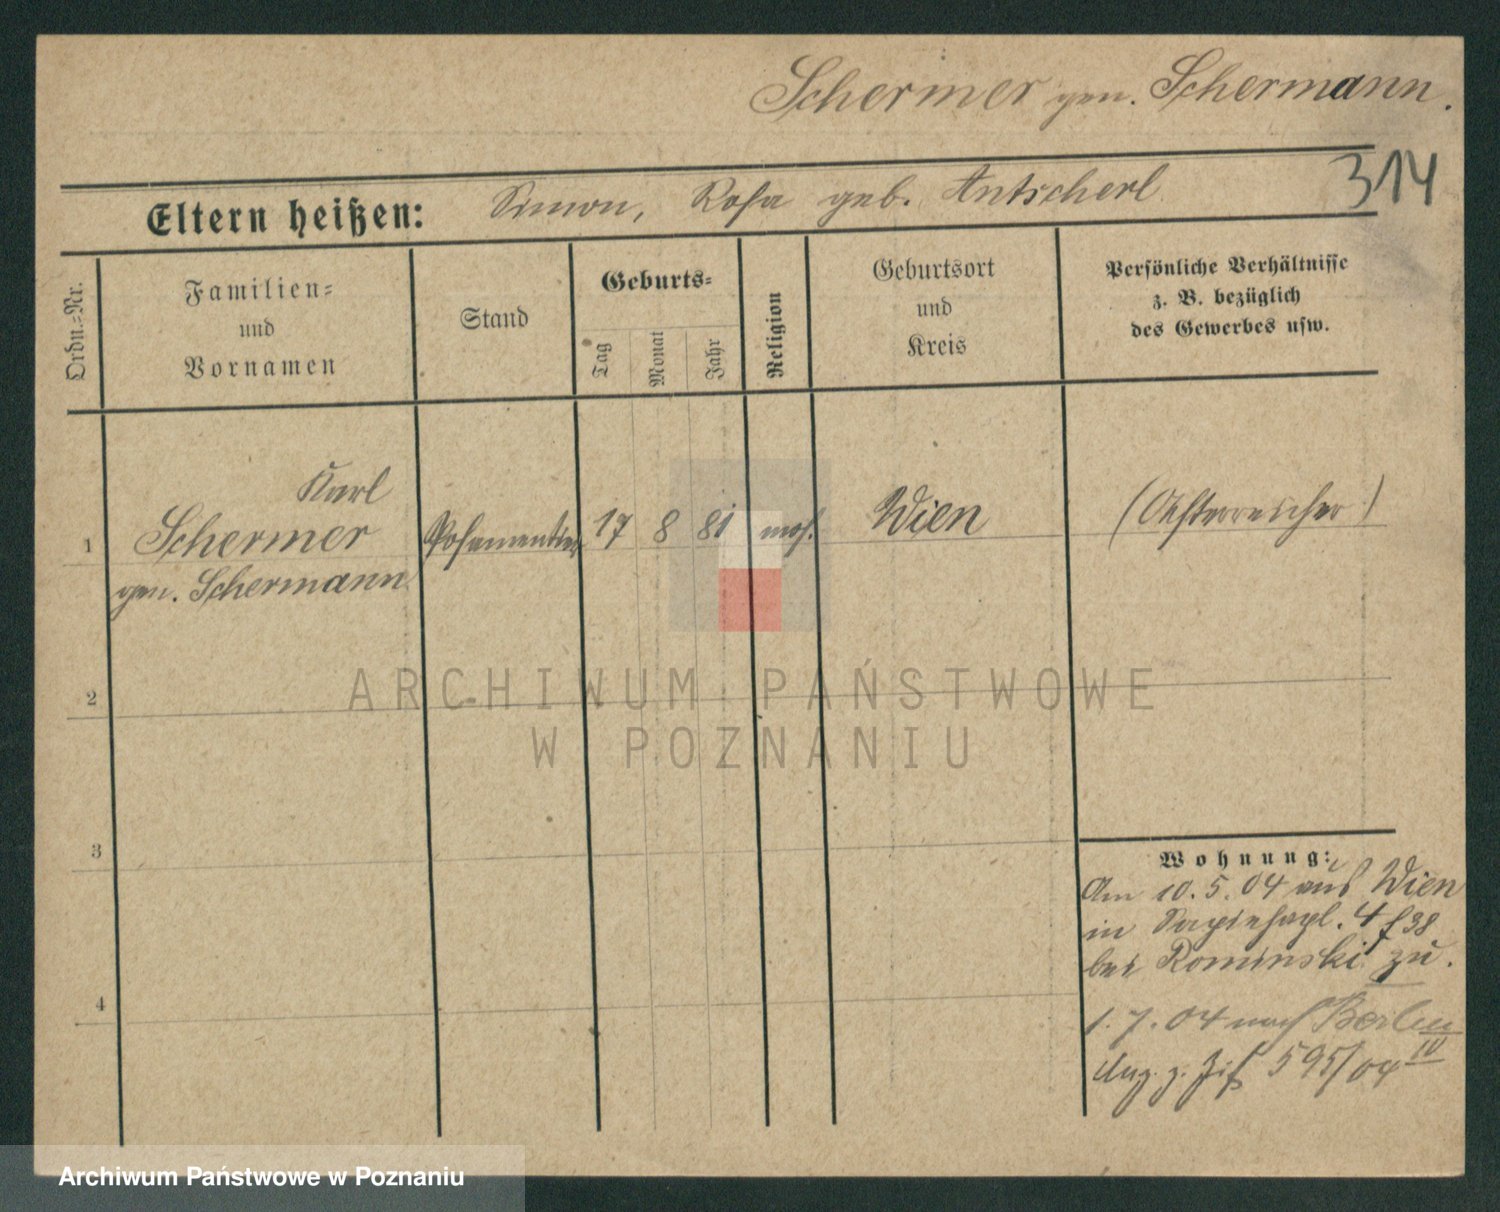 Schermer gen. Schermann.
314
Eltern heißen: Simon, Rosa geb. Antscherl
Ordn.-Nr.
Familien-
und
Vornamen
Stand
Geburts-
Tag
Monat
Jahr
Religion
Geburtsort
und
Kreis
Persönliche Verhältnisse
z. B. bezüglich
des Gewerbes usw.
Karl
1 Schermer Posamentier 17 8 81 mos. Wien (Oesterreicher)
gen. Schermann
2
3
4
Wohnung:
Am 10.5.04 aus Wien
in Sapiehapl. 4 f 38
bei Rominski zu.
1.7.04 nach Berlin
Ang. z. 595/04 IV
ARCHIWUM PAŃSTWOWE
W POZNANIU
Archiwum Państwowe w Poznaniu